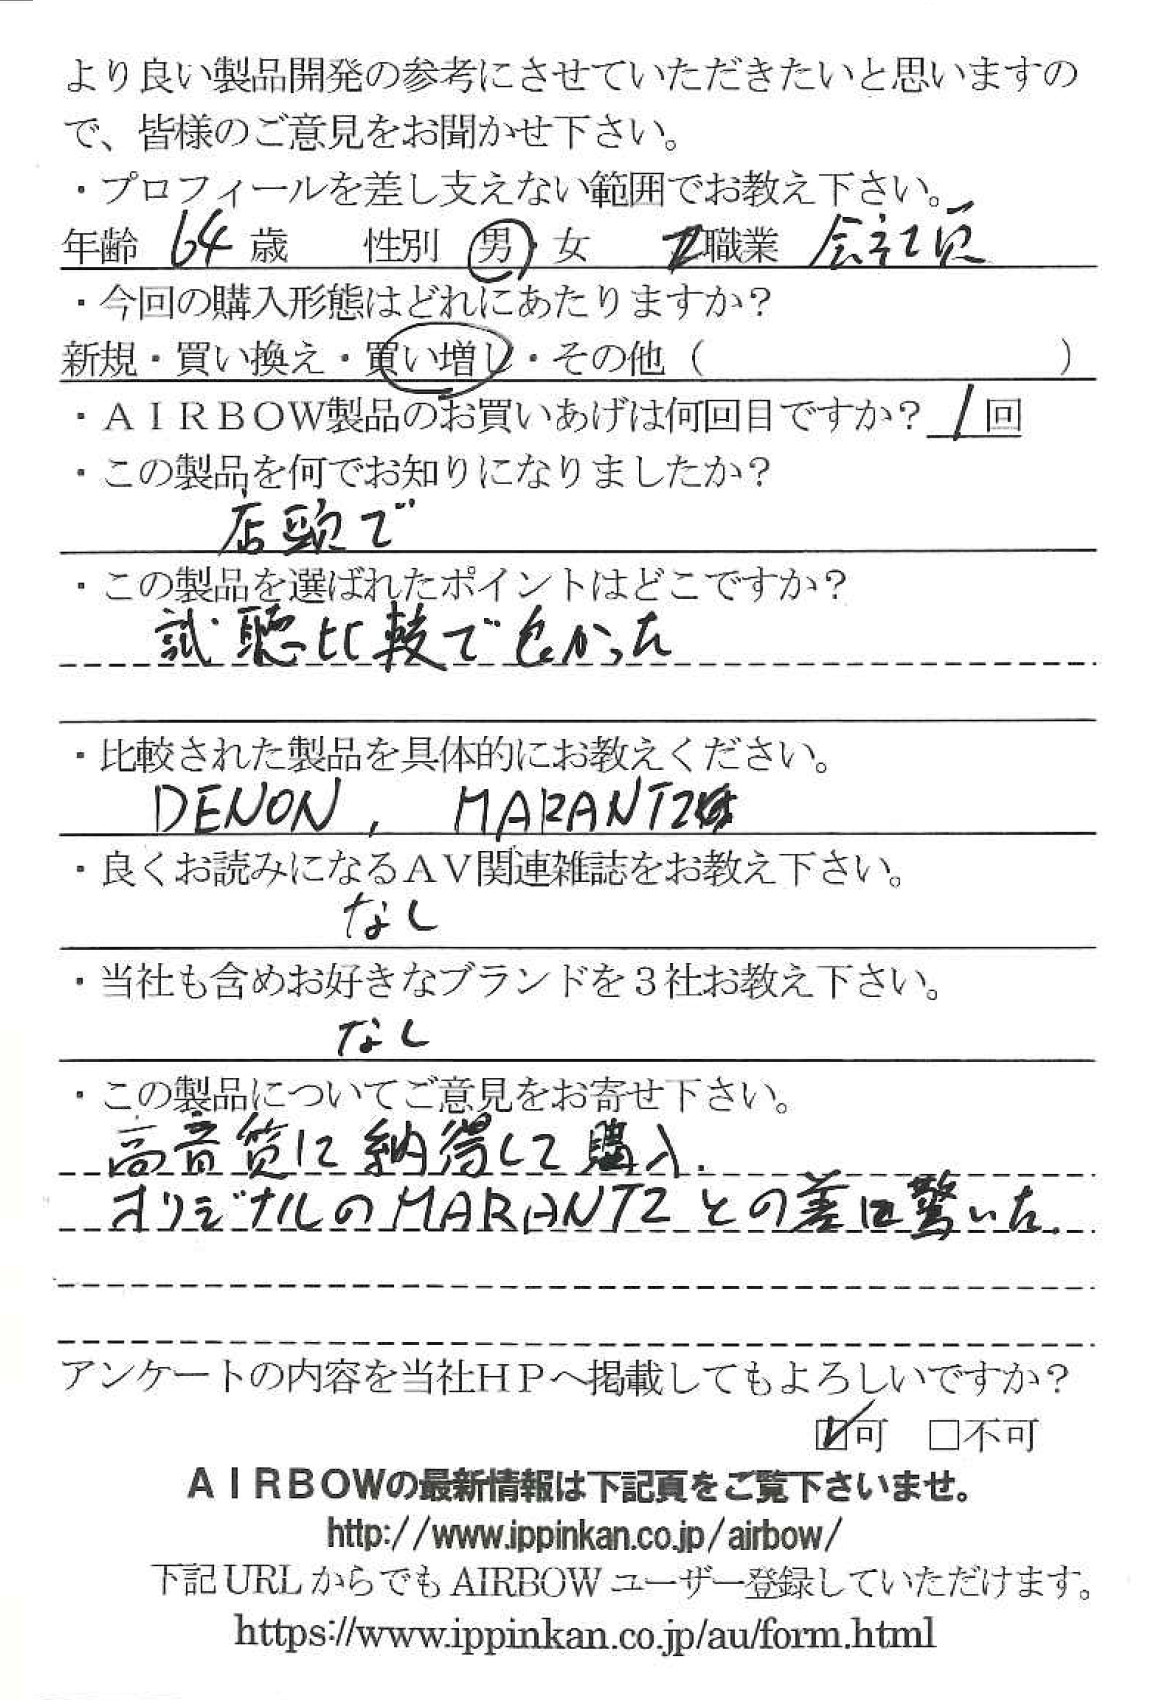 より良い製品開発の参考にさせていただきたいと思いますの
で、皆様のご意見をお聞かせ下さい。
・プロフィールを差し支えない範囲でお教え下さい。
年齢 64 歳 性別 男・女 職業 会社員
・今回の購入形態はどれにあたりますか？
新規・買い換え・買い増し・その他（ ）
・ＡＩＲＢＯＷ製品のお買いあげは何回目ですか？ 1 回
・この製品を何でお知りになりましたか？
店頭で
・この製品を選ばれたポイントはどこですか？
試聴比較で良かった
・比較された製品を具体的にお教えください。
DENON, MARANTZ
・良くお読みになるＡＶ関連雑誌をお教え下さい。
なし
・当社も含めお好きなブランドを３社お教え下さい。
なし
・この製品についてご意見をお寄せ下さい。
高音質に納得して購入.
オリジナルのMARANTZとの差に驚いた.
アンケートの内容を当社ＨＰへ掲載してもよろしいですか？
☑可 □不可
ＡＩＲＢＯＷの最新情報は下記頁をご覧下さいませ。
http://www.ippinkan.co.jp/airbow/
下記 URL からでも AIRBOW ユーザー登録していただけます。
https://www.ippinkan.co.jp/au/form.html